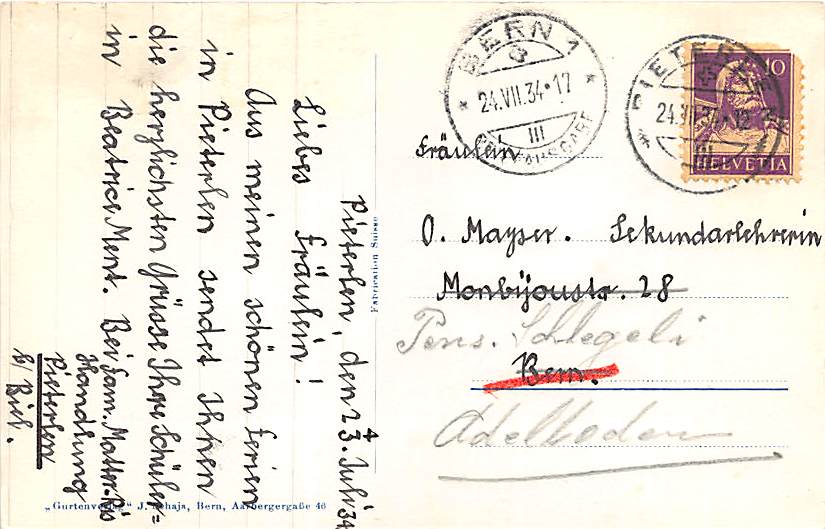 Pieterlen, den 24. Juli 34
Liebes Fräulein!
Aus meinen schönen Ferien
in Pieterlen sendet Ihnen
die herzlichsten Grüsse Ihre Schüler=
in Beatrice Ment. Bei Fam.
Handlung
Pieterlen
b/Biel.
Fabrication Suisse
„Gurtenverlag" J. Schaja, Bern, Aarbergergaße 46
BERN 1
24.VII.34·17
III
PIETERLEN
24.VII.34
III
10
HELVETIA
Fräulein
O. Mayser. Sekundarlehrerin
Monbijoustr. 28
Pens. Schlegeli
Bern.
Adelboden